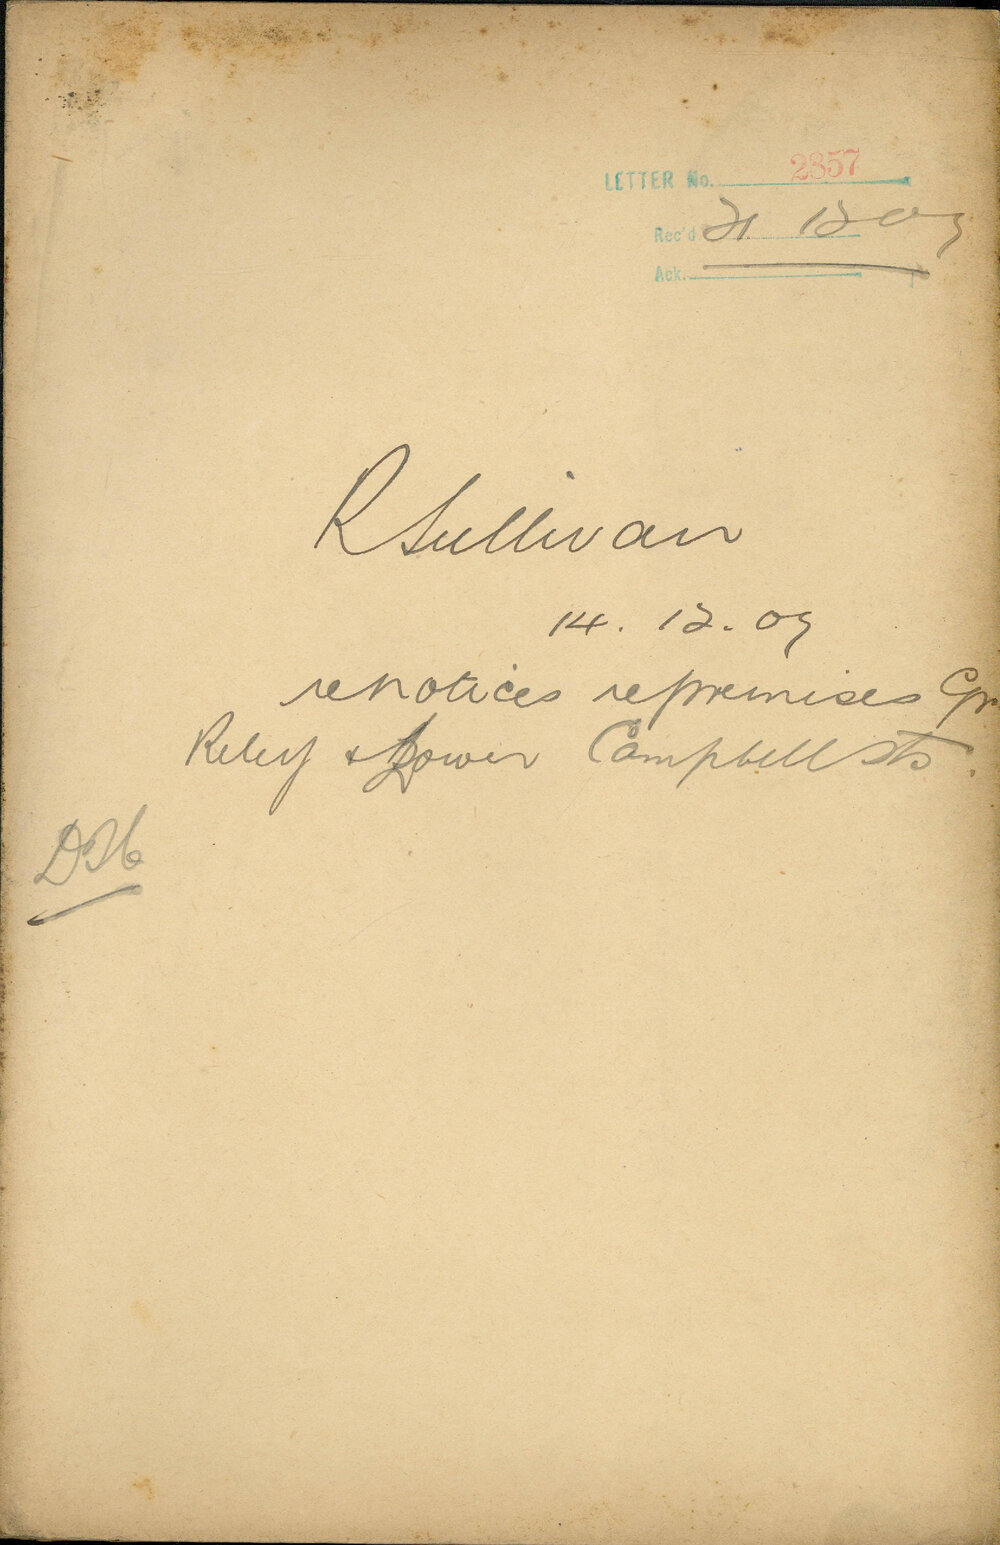 LETTER No. 2357
Rec'd 21 12 09
Ack.
R Sullivan
14. 12. 09
re notices re premises Cpr
Riley & Lower Campbell sts.